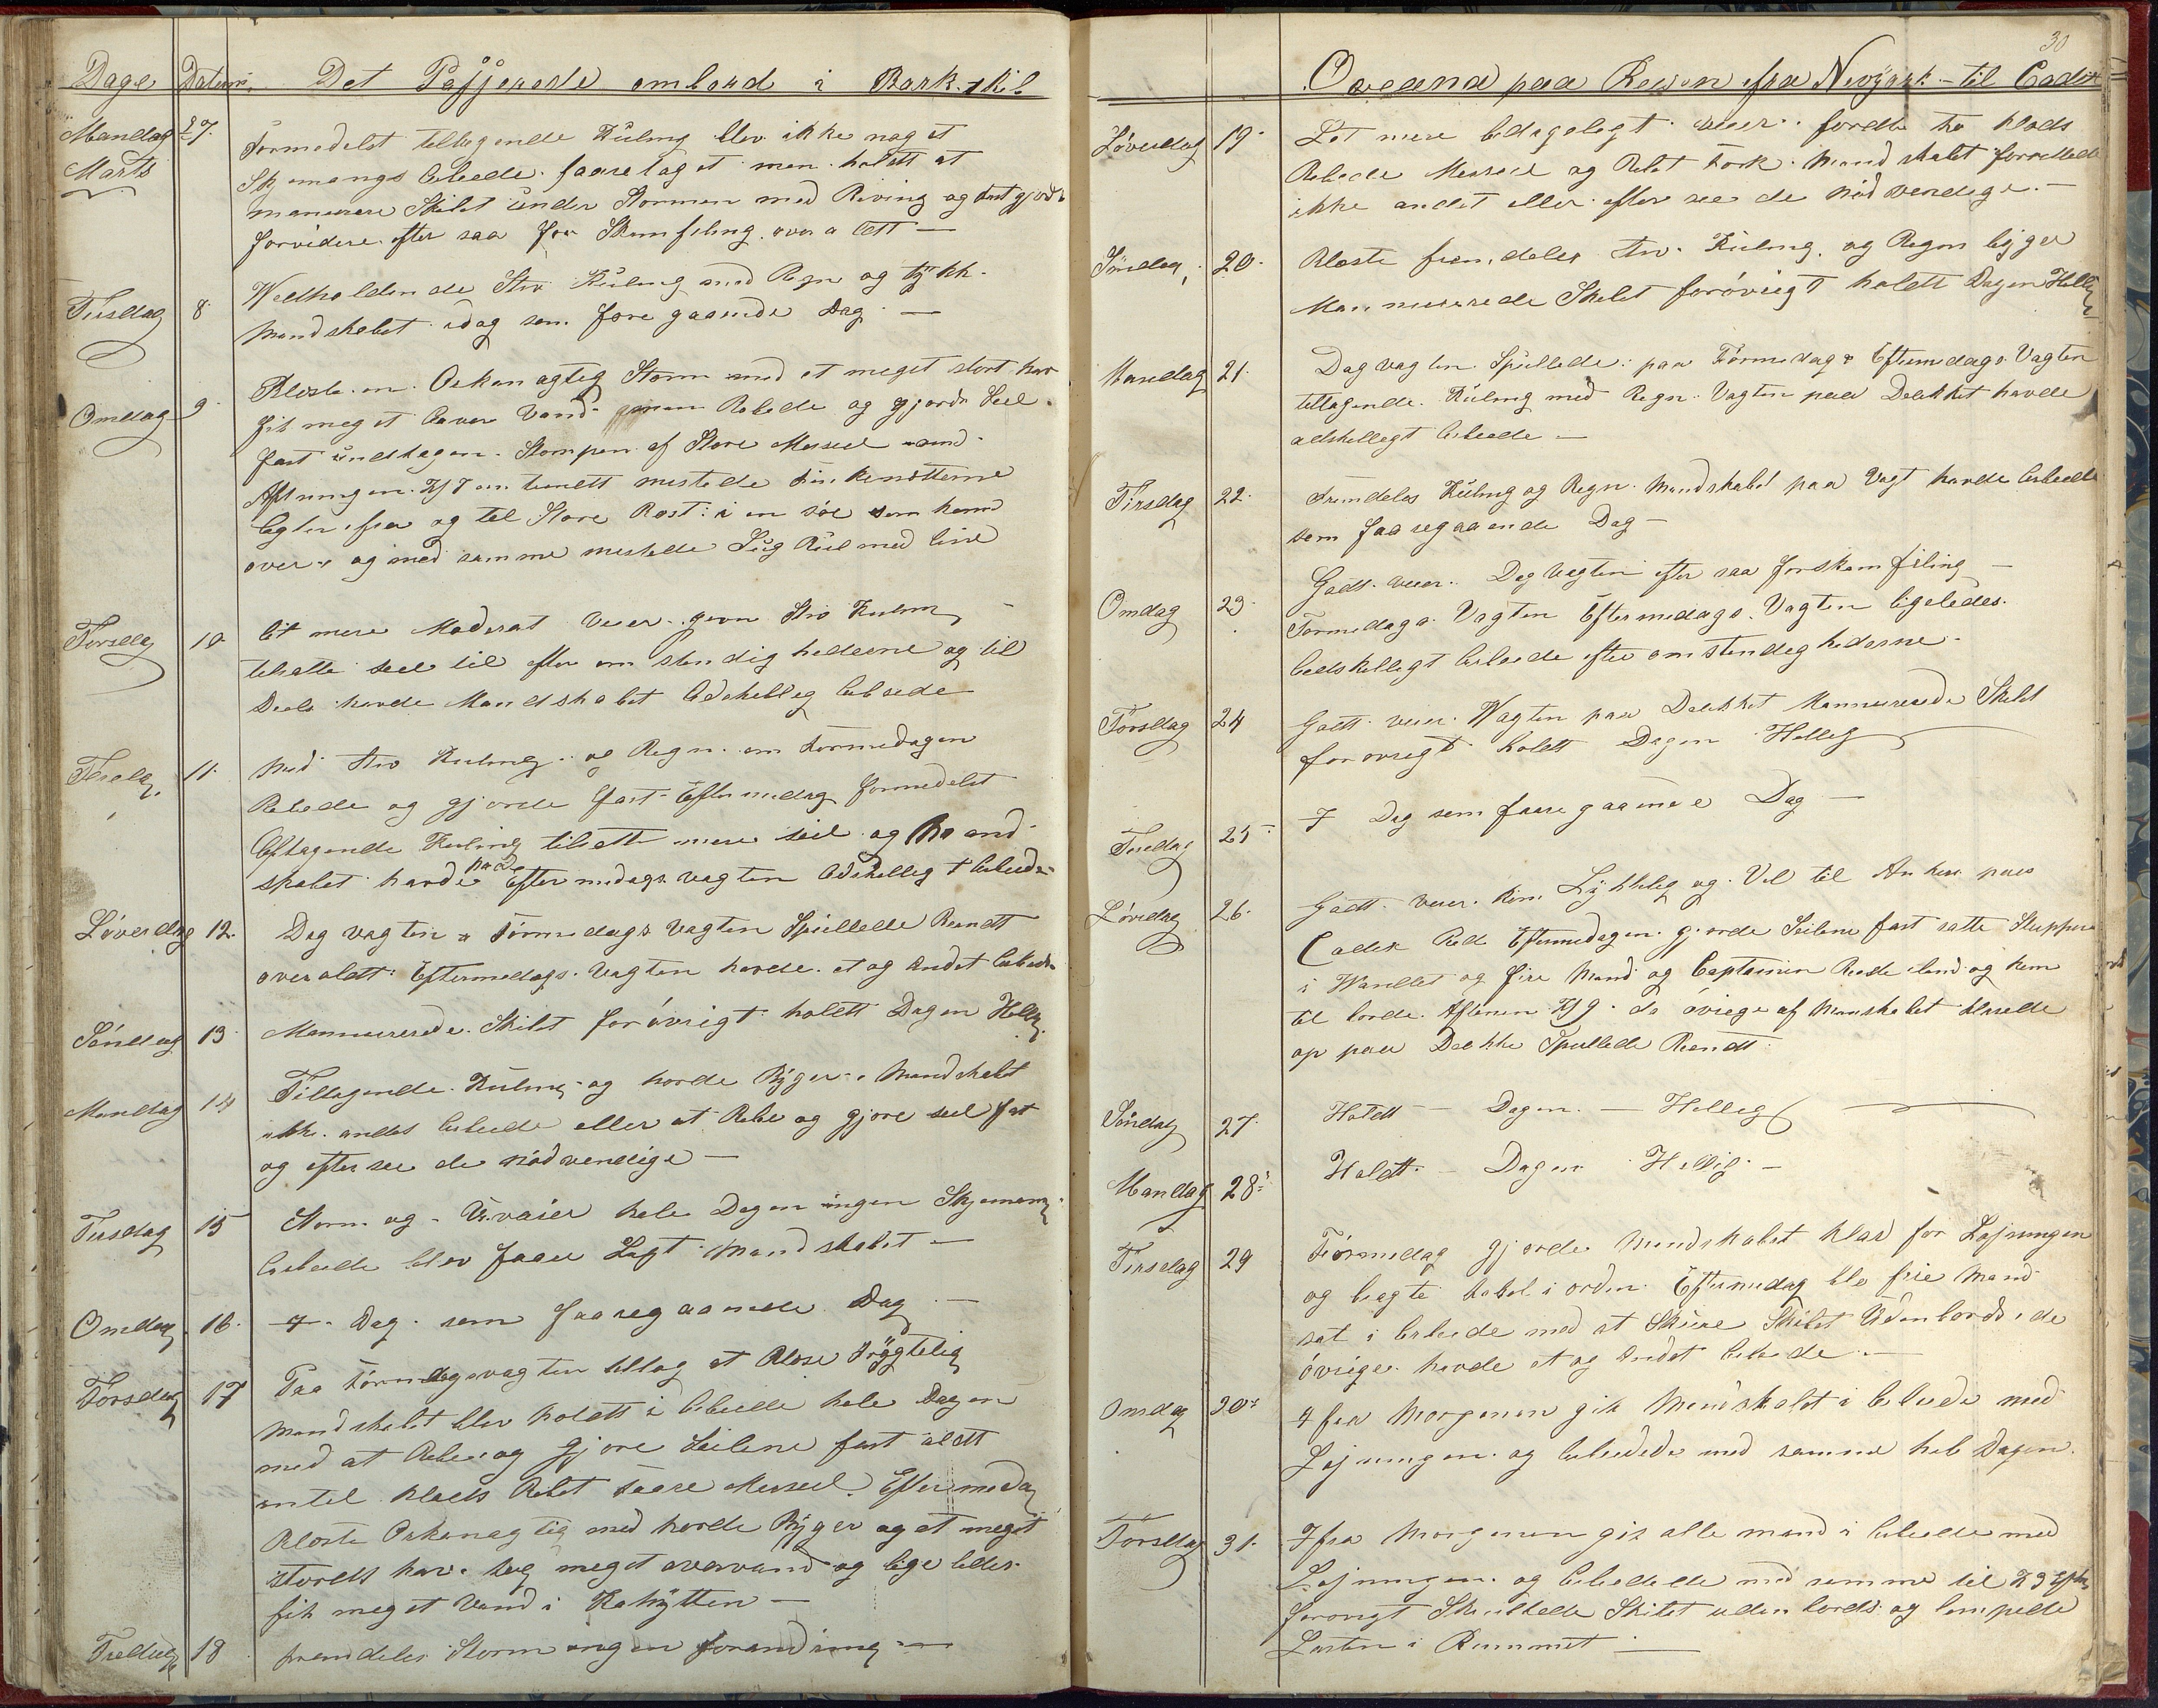 Dage Datum. Det Passerede ombord i Bark-skib
Mandag 27. Formedelst tiltagende Kuling blev ikke noget
Marts Skjemangs arbeide faaretaget men holdt at
manuvrere Skibet under Stormen med Reving og fast gjorde
forvidere efter saa for Skamfiling over alt —
Tirsdag 8 Wedholdende Stiv Kuling med Regn og tykk.
Mandskabet idag som foregaaende Dag —
Omdag 9 Blæste en Orkan agtig Storm med et meget stort hav
fik meget over Vand Rebede og gjorde Seil
fast undtagen Stompen af Store Merseil
Aftningen Kl 7
fra og til Store Røst i en söe som kom
over og med samme mistede
Torsdag 10 Lit mere Moderat Veier Stiv Kuling
tilsatte seil til efter omstendighederne og til
Deels havde Mandskabet Adskillig Arbeide
11. med Stiv Kuling og Regn om Formedagen
Rebede og gjorde fast Eftermidag formedelst
Aftagende Kuling tilsatte mere seil og Mand
skabet havde paa Eftermidags vagten Adskilligt Arbeide
Löverdag 12. Dag vagten & Formedags vagten Spullede Rendt
over aldt Eftermedags Vagten havde et og Andet Arbeide
Söndag 13. Mannuvrerede Skibet forövrigt holdt Dagen Hellig
Mandag 14 Tiltagende Kuling og haarde Byger Mandskabet
ikke andet Arbeide eller at Rebe og gjöre seil fast
og efter see de nödvendige —
Tirsdag 15 Storm og Uvaier hele Dagen ingen Skjemans
Arbeide blev faare Lagt Mandskabet —
Omdag 16. Dag som faaregaaende Dag —
Torsdag 17 Paa Formdagsvagten tiltog at Blæse Frögtelig
Mandskabet blev holdt i Arbeide hele Dagen
med at Rebe og Gjøre Seilene fast aldt
intil Klods Rebet Store Merseil Eftermedag
Blæste Orkanagtig med haarde Byger og et meget
stordt hav tog meget overvand og lige ledes
fik meget Vand i Kahytten —
18 fremdeles Storm ingen forandring —
30
Oceana paa Reisen fra Nevyork til Cadix
Löverdag 19. Lit mere bedageligt veier förte to Klods
Rebede Merseil og Rebet Fock Mandskabet forrettede
ikke andet eller efter see de Nödvendige —
Söndag 20. Blæste fremdeles Stiv Kuling og Regn byger
Mannuvrerede Skibet forövrigt holdt Dagen Hellig
Mandag 21. Dag vagten Spullede paa Formedags & Eftermedags Vagten
tiltagende Kuling med Regn Vagten paa Dækket havde
adskilligt Arbeide —
Tirsdag 22. Fremdeles Kuling og Regn Mandskabet paa Vagt havde Arbeide
som faaregaaende Dag —
Omdag 23. Godt veier Dag Vagten efter saa for skamfiling —
Formedags Vagten Eftermedags Vagten ligeledes
Arbeide efter omstendeghederne —
Torsdag 24 Godt veier Wagten paa Dækket Mannuvrerede Skibet
forovrigt holdt Dagen Hellig
25 Dag som faaregaaende Dag —
Löverdag 26. Godt veier Kom Lykkelig og Vel til Anker paa
Cadix Red Eftermedagen gjorde Seilene fast satte Sluppen
i Wandet og fire Mand og Captainen Roede iland og kom
til borde Aftenen Kl 9 de övrige af Manskabet klarede
op paa Dekke Spullede Rendt
Söndag 27. Holdt — Dagen — Hellig
Mandag 28. Holdt — Dagen Hellig —
Tirsdag 29 Formedag gjorde Mandskabet klar for Losningen
og bragte i orden Eftermedag blev fire Mand
sat i Arbeide med at Skure Skibet Udenbords de
övrige havde et og Andet Arbeide —
Omdag fra Morgenen gik Mandskabet i Arbeide med
Losningen og Arbeidede med samme hele Dagen
Torsdag 31. fra Morgenen gik alle mand i Arbeide med
Losningen og Arbeidede med samme til
forovrigt Skullede Skibet uden bords og lempede
Lasten i Rummet —